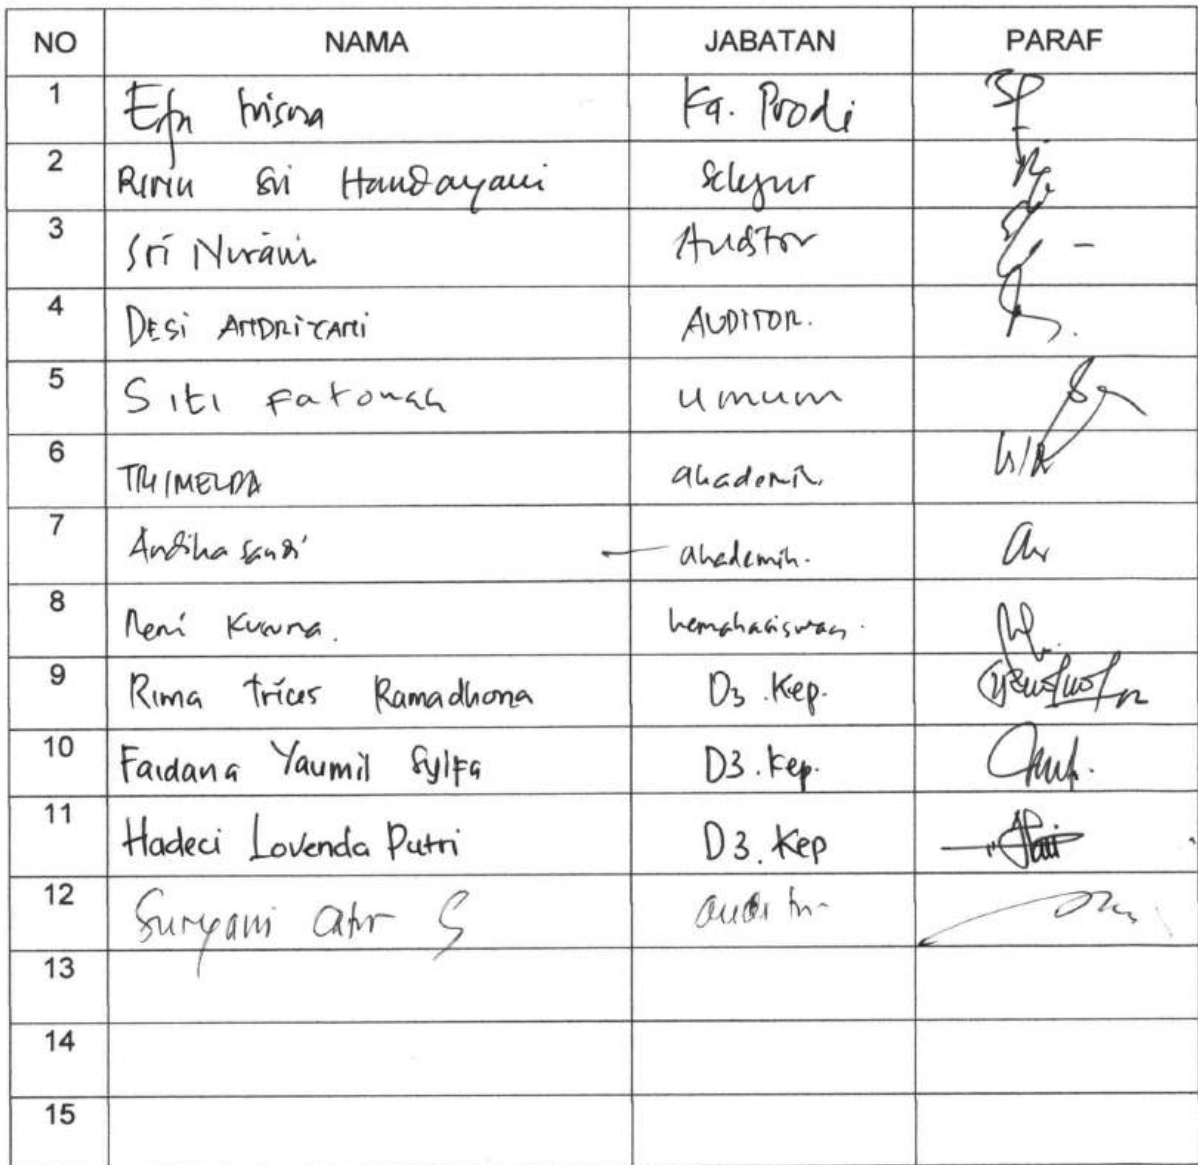 NO NAMA JABATAN PARAF
1 Efa Trisna Ka. Prodi
2 Ririn Sri Handayani
3 Sri Nuraini Auditor
4 DESi ANDRIYANI AUDITOR.
5 Siti Fatonah umum
6 TRIMELDA akademik
7 Andika Sandi akademik.
8 Reni Kusuma. kemahasiswaan.
9 Rima Trices Ramadhona D3.Kep.
10 Faidana Yaumil Sylfa D3.Kep.
11 Hadeci Lovenda Putri D3.Kep
12 Suryani Catur S auditor
13
14
15